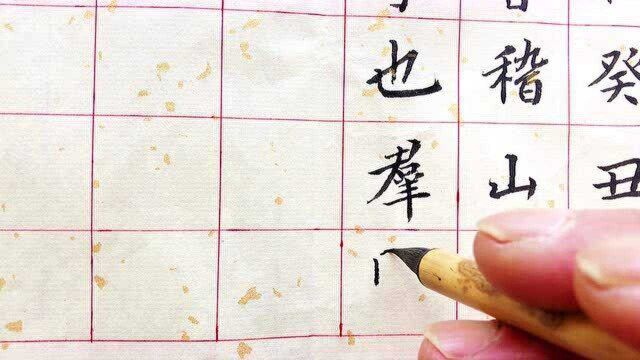 癸丑
稽山
也羣